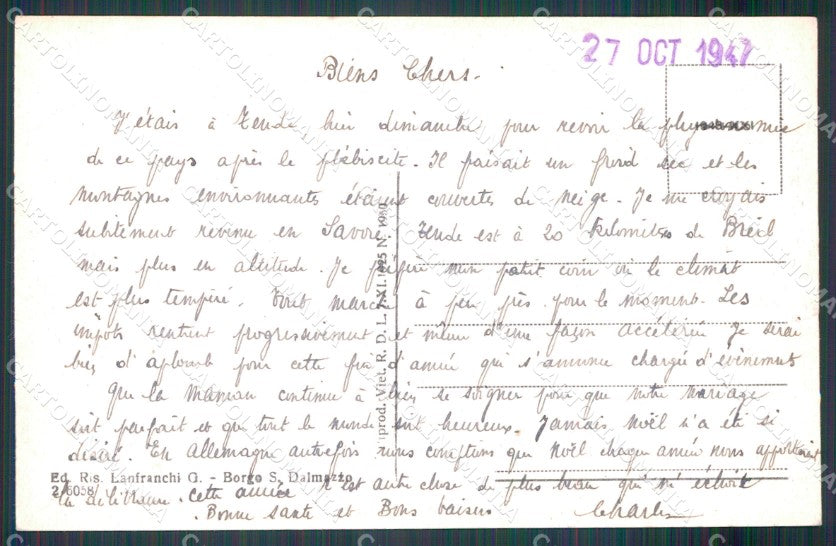 27 OCT 1947
Biens Chers.
J'étais à Tende hier dimanche pour revoir la physionomie
de ce pays après le plébiscite. Il faisait un froid sec et les
montagnes environnantes étaient couvertes de neige. Je me croyais
subitement revenu en Savoie. Tende est à 20 kilomètres de Breil
mais plus en altitude. Je préfère mon petit coin où le climat
est plus tempéré. Tout marche à peu près pour le moment. Les
impôts rentrent progressivement et même d'une façon accélérée Je serai
bien d'aplomb pour cette fin d'année qui s'annonce chargée d'évènements
Que la maman continue à bien se soigner pour que notre mariage
soit parfait et que tout le monde soit heureux. Jamais Noël n'a été si
désiré. En Allemagne autrefois nous comptions que Noël chaque année nous apporterait
la délivrance. Cette année c'est autre chose de plus beau qui m'échoit
Bonne santé et Bons baisers
Charles
Ed. Ris. Lanfranchi G. - Borgo S. Dalmazzo
2/6058
Riprod. Viet. R. D. L. 7.XI.1925 N. 1950
CARTOLINOMANIA